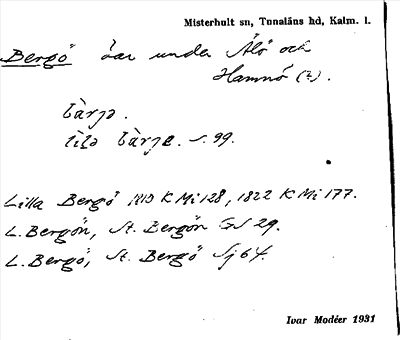 Misterhult sn, Tunaläns hd, Kalm. l.
Bergö öar under Älö och
Hamnö (?).
bàrjə.
lìlə bàrjə. s. 99.
Lilla Bergö 1813 K Mi 128, 1822 K Mi 177.
L. Bergön, St. Bergön GS 29.
L. Bergö, St. Bergö Sj 64.
Ivar Modéer 1931